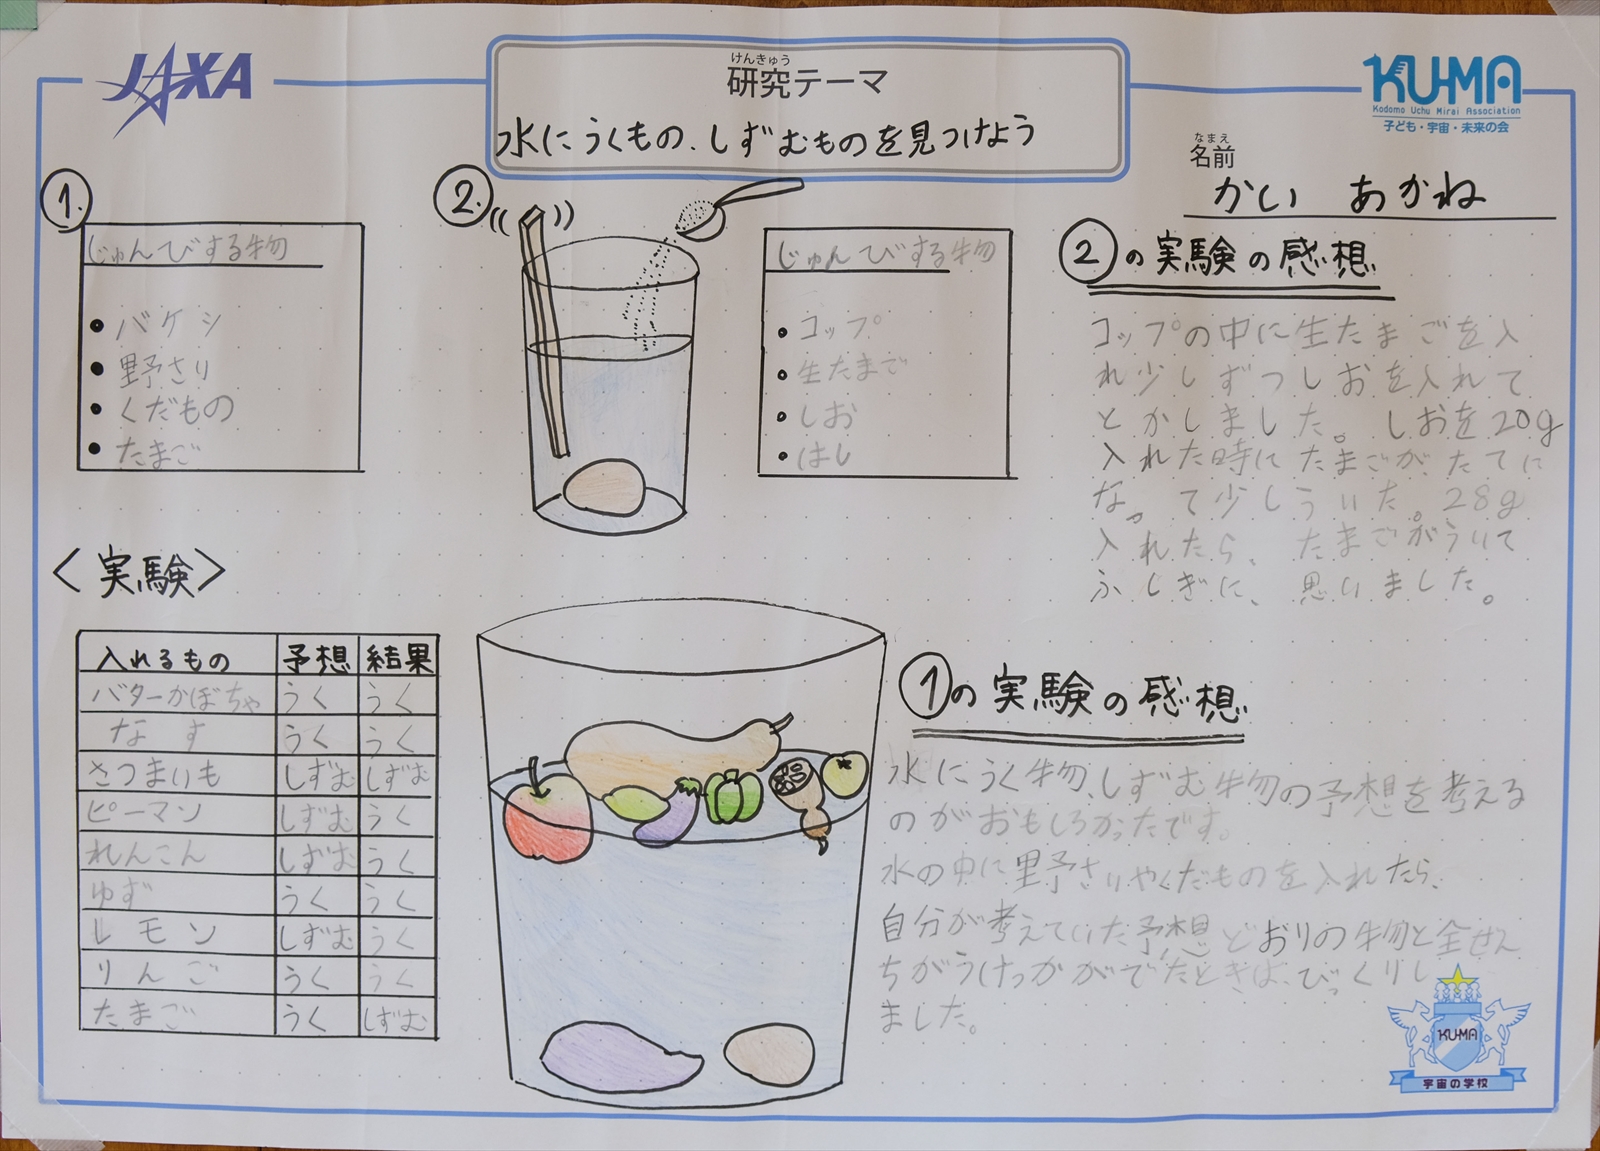 JAXA
けんきゅう
研究テーマ
水にうくもの、しずむものを見つけよう
KU-MA
Kodomo Uchu Mirai Association
子ども・宇宙・未来の会
なまえ
名前
かい あかね
1.
じゅんびする物
・バケシ
・野さい
・くだもの
・たまご
2.
じゅんびする物
・コップ
・生たまご
・しお
・はし
②の実験の感想
コップの中に生たまごを入
れ少しずつしおを入れて
とかしました。しおを20g
入れた時にたまごが、たてに
なって少しういた。28g
入れたら、たまごがういて
ふしぎに、思いました。
<実験>
入れるもの 予想 結果
バターかぼちゃ うく うく
なす うく うく
さつまいも しずむ しずむ
ピーマン しずむ うく
れんこん しずむ うく
ゆず うく うく
レモン しずむ うく
りんご うく うく
たまご うく しずむ
①の実験の感想
水にうく物、しずむ物の予想を考える
のがおもしろかったです。
水の中に野さいやくだものを入れたら、
自分が考えていた予想どおりの物と全ぜん
ちがうけっかがでたときは、びっくりし
ました。
KU-MA
宇宙の学校